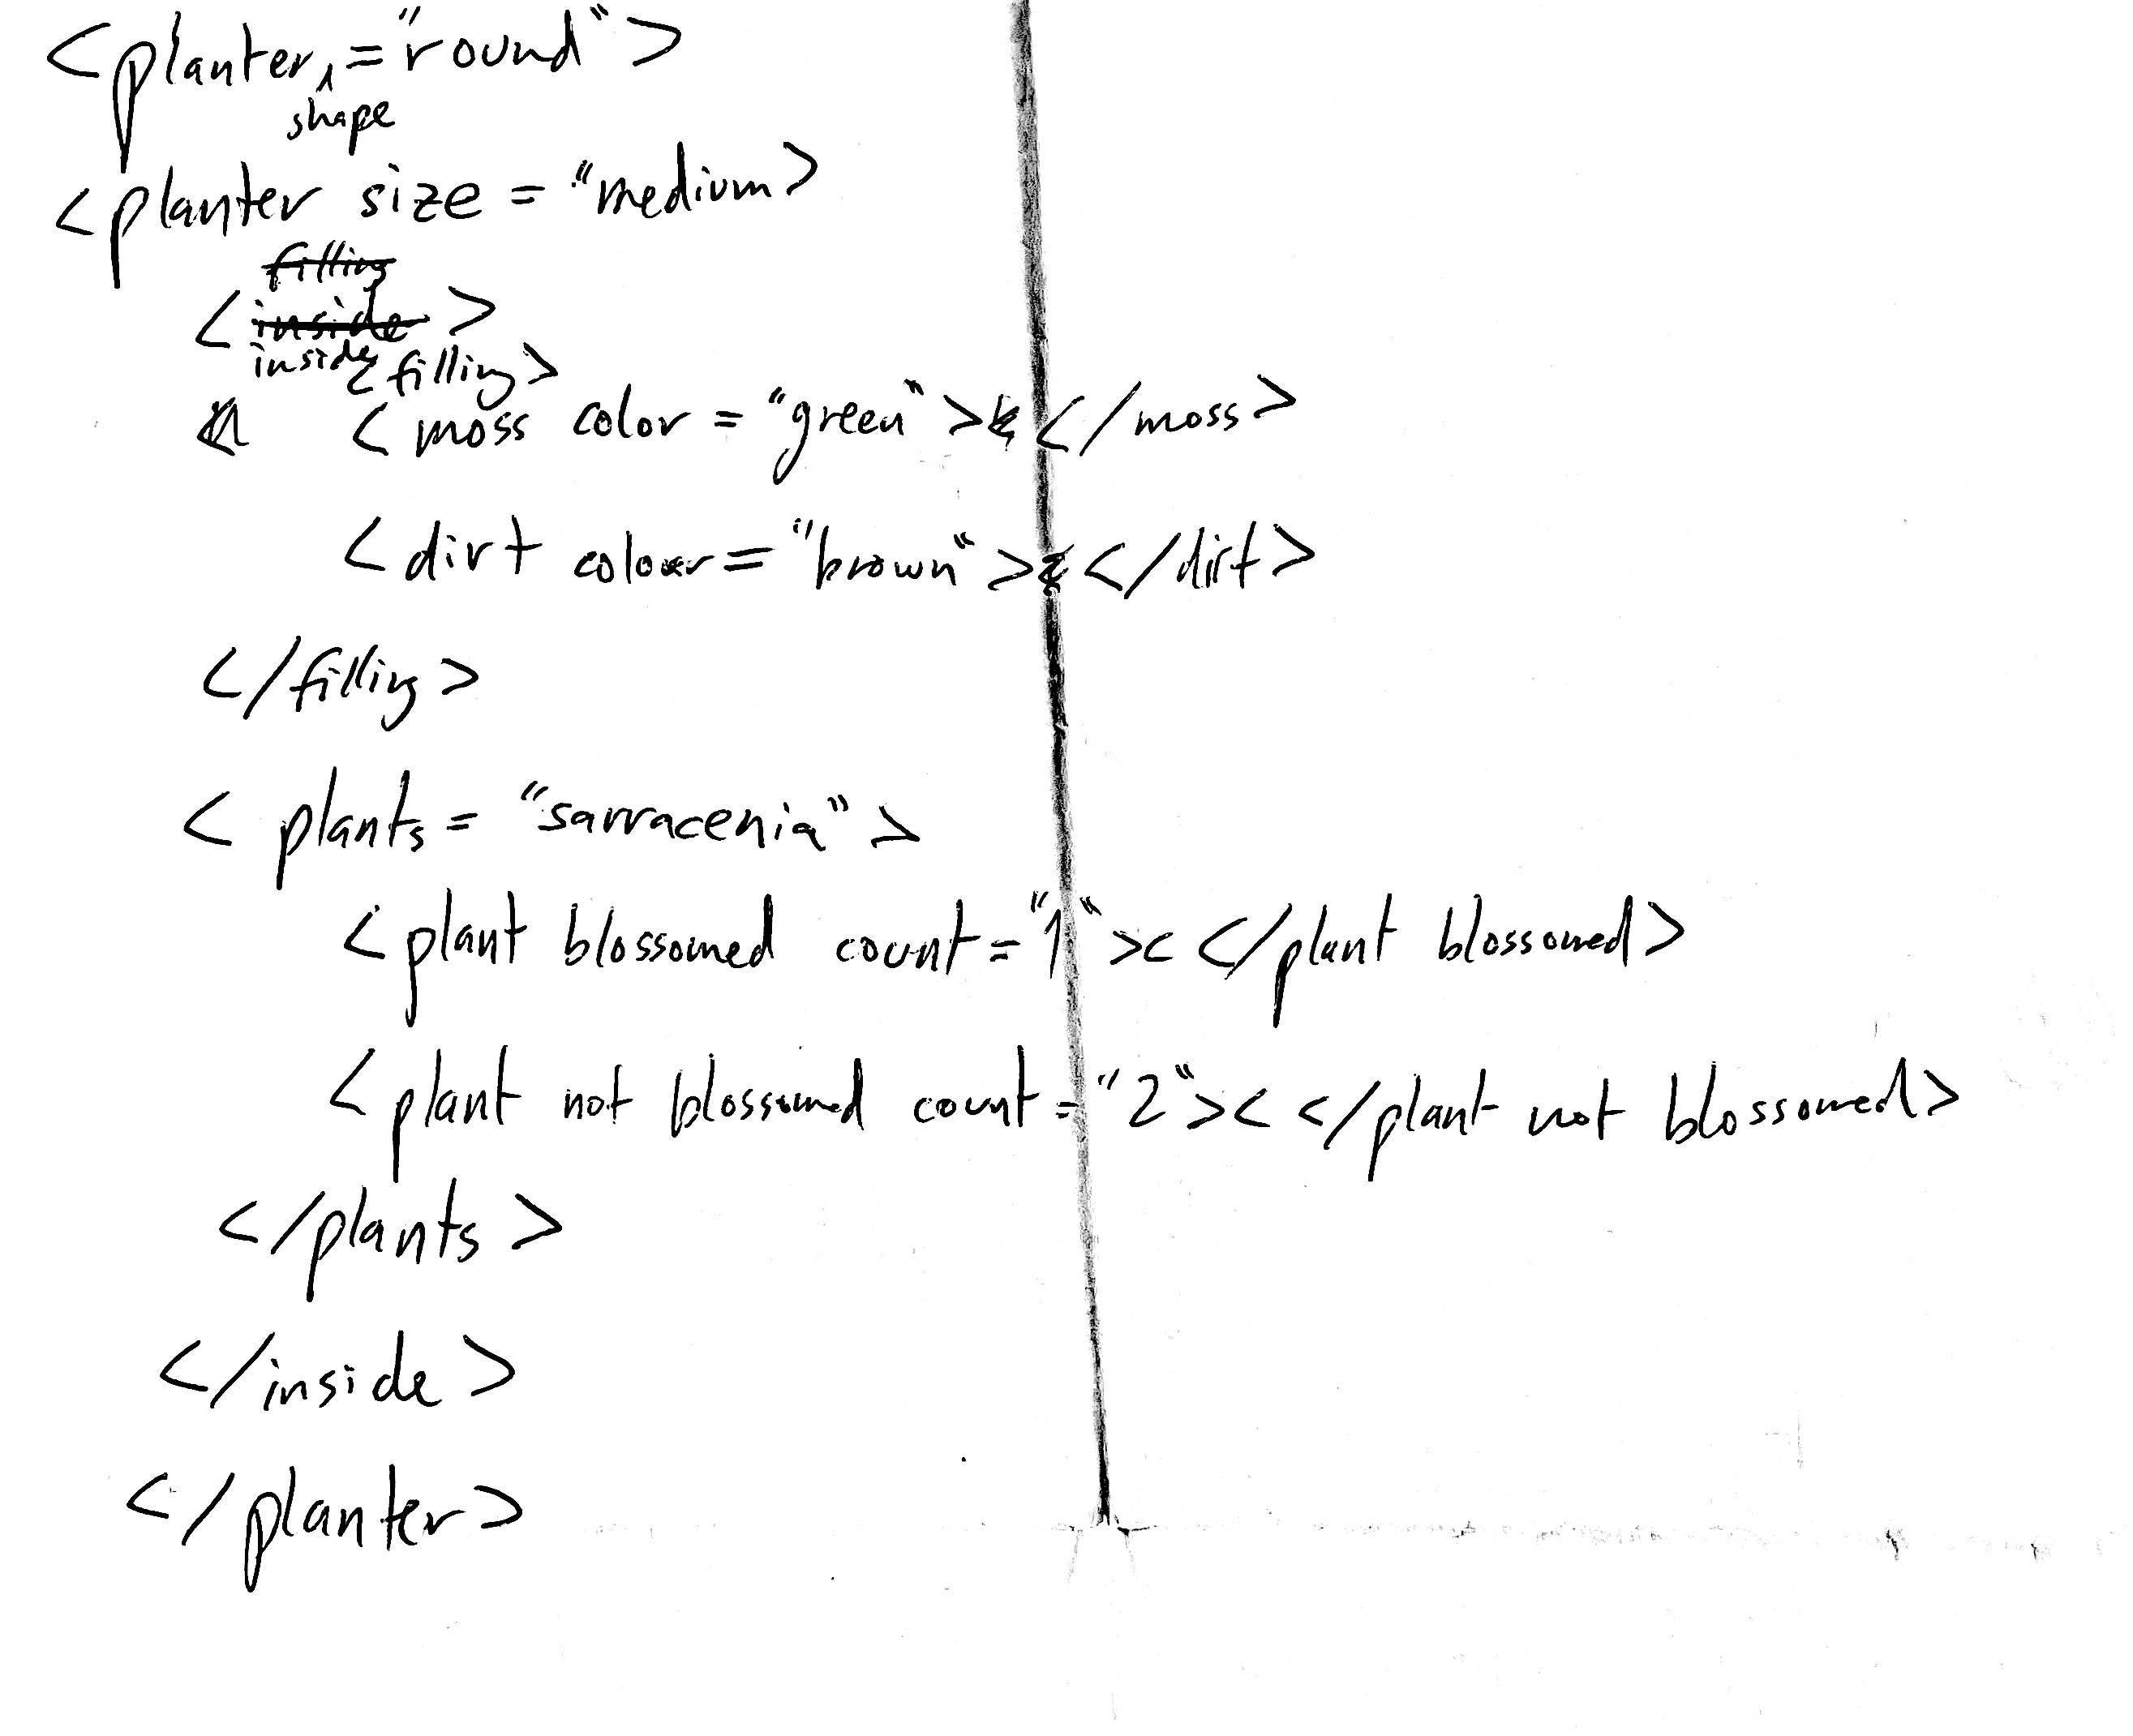 <planter shape="round">
<planter size = "medium>
<inside>
<filling>
<moss color = "green"></moss>
<dirt color="brown"></dirt>
</filling>
<plants = "sarracenia">
<plant blossomed count="1">< </plant blossomed>
<plant not blossomed count="2">< </plant not blossomed>
</plants>
</inside>
</planter>